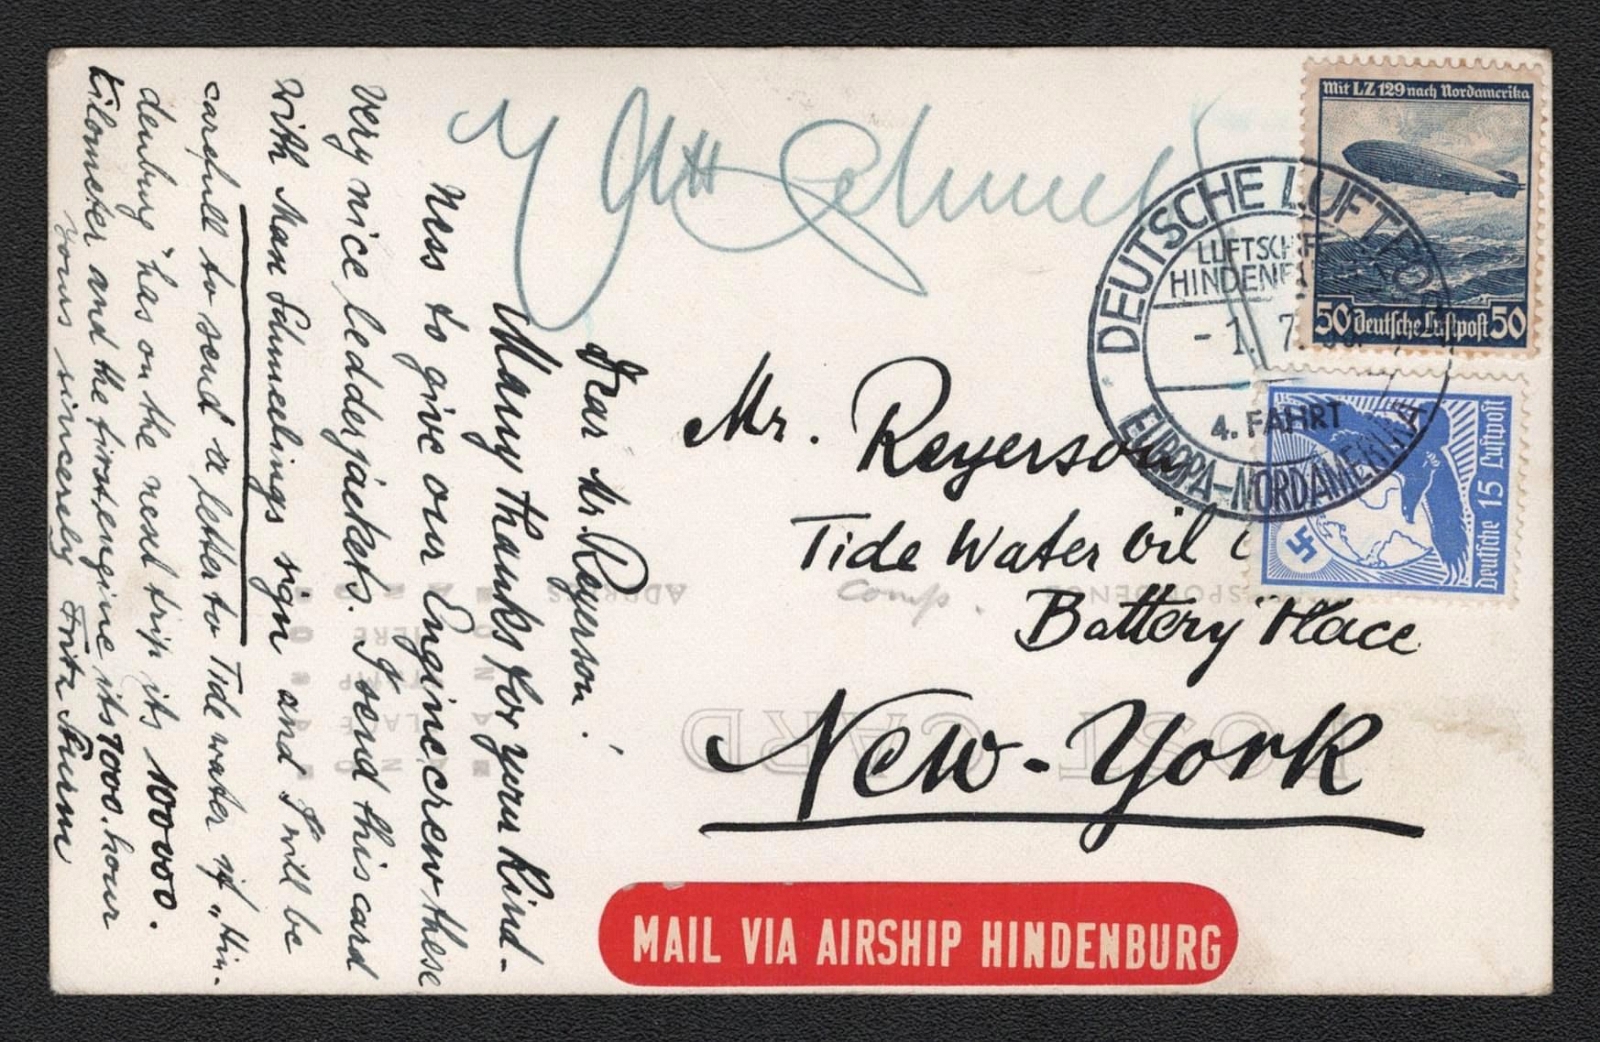 Dear Mr. Reyerson!
Many thanks for your Kind-
ness to give our Engincecrew these
very nice ledderjackets. I send this card
with Max Schmeelings sign and I will be
carefull to send a letter to Tide water if „Hin-
denburg" has on the next trip its 100000.
Kilometer and the first engine its 1000. hour
yours sincerely Fritz Sturm
Mr. Reyerson
Tide Water Oil
Comp.
Battery Place
New-York
MAIL VIA AIRSHIP HINDENBURG
Mit LZ 129 nach Nordamerika
50 Deutsche Luftpost 50
Deutsche 15 Luftpost
DEUTSCHE LUFTPOST
LUFTSCHIFF
- 1. 7.
4. FAHRT
EUROPA-NORDAMERIKA
POST CARD
ADDRESS